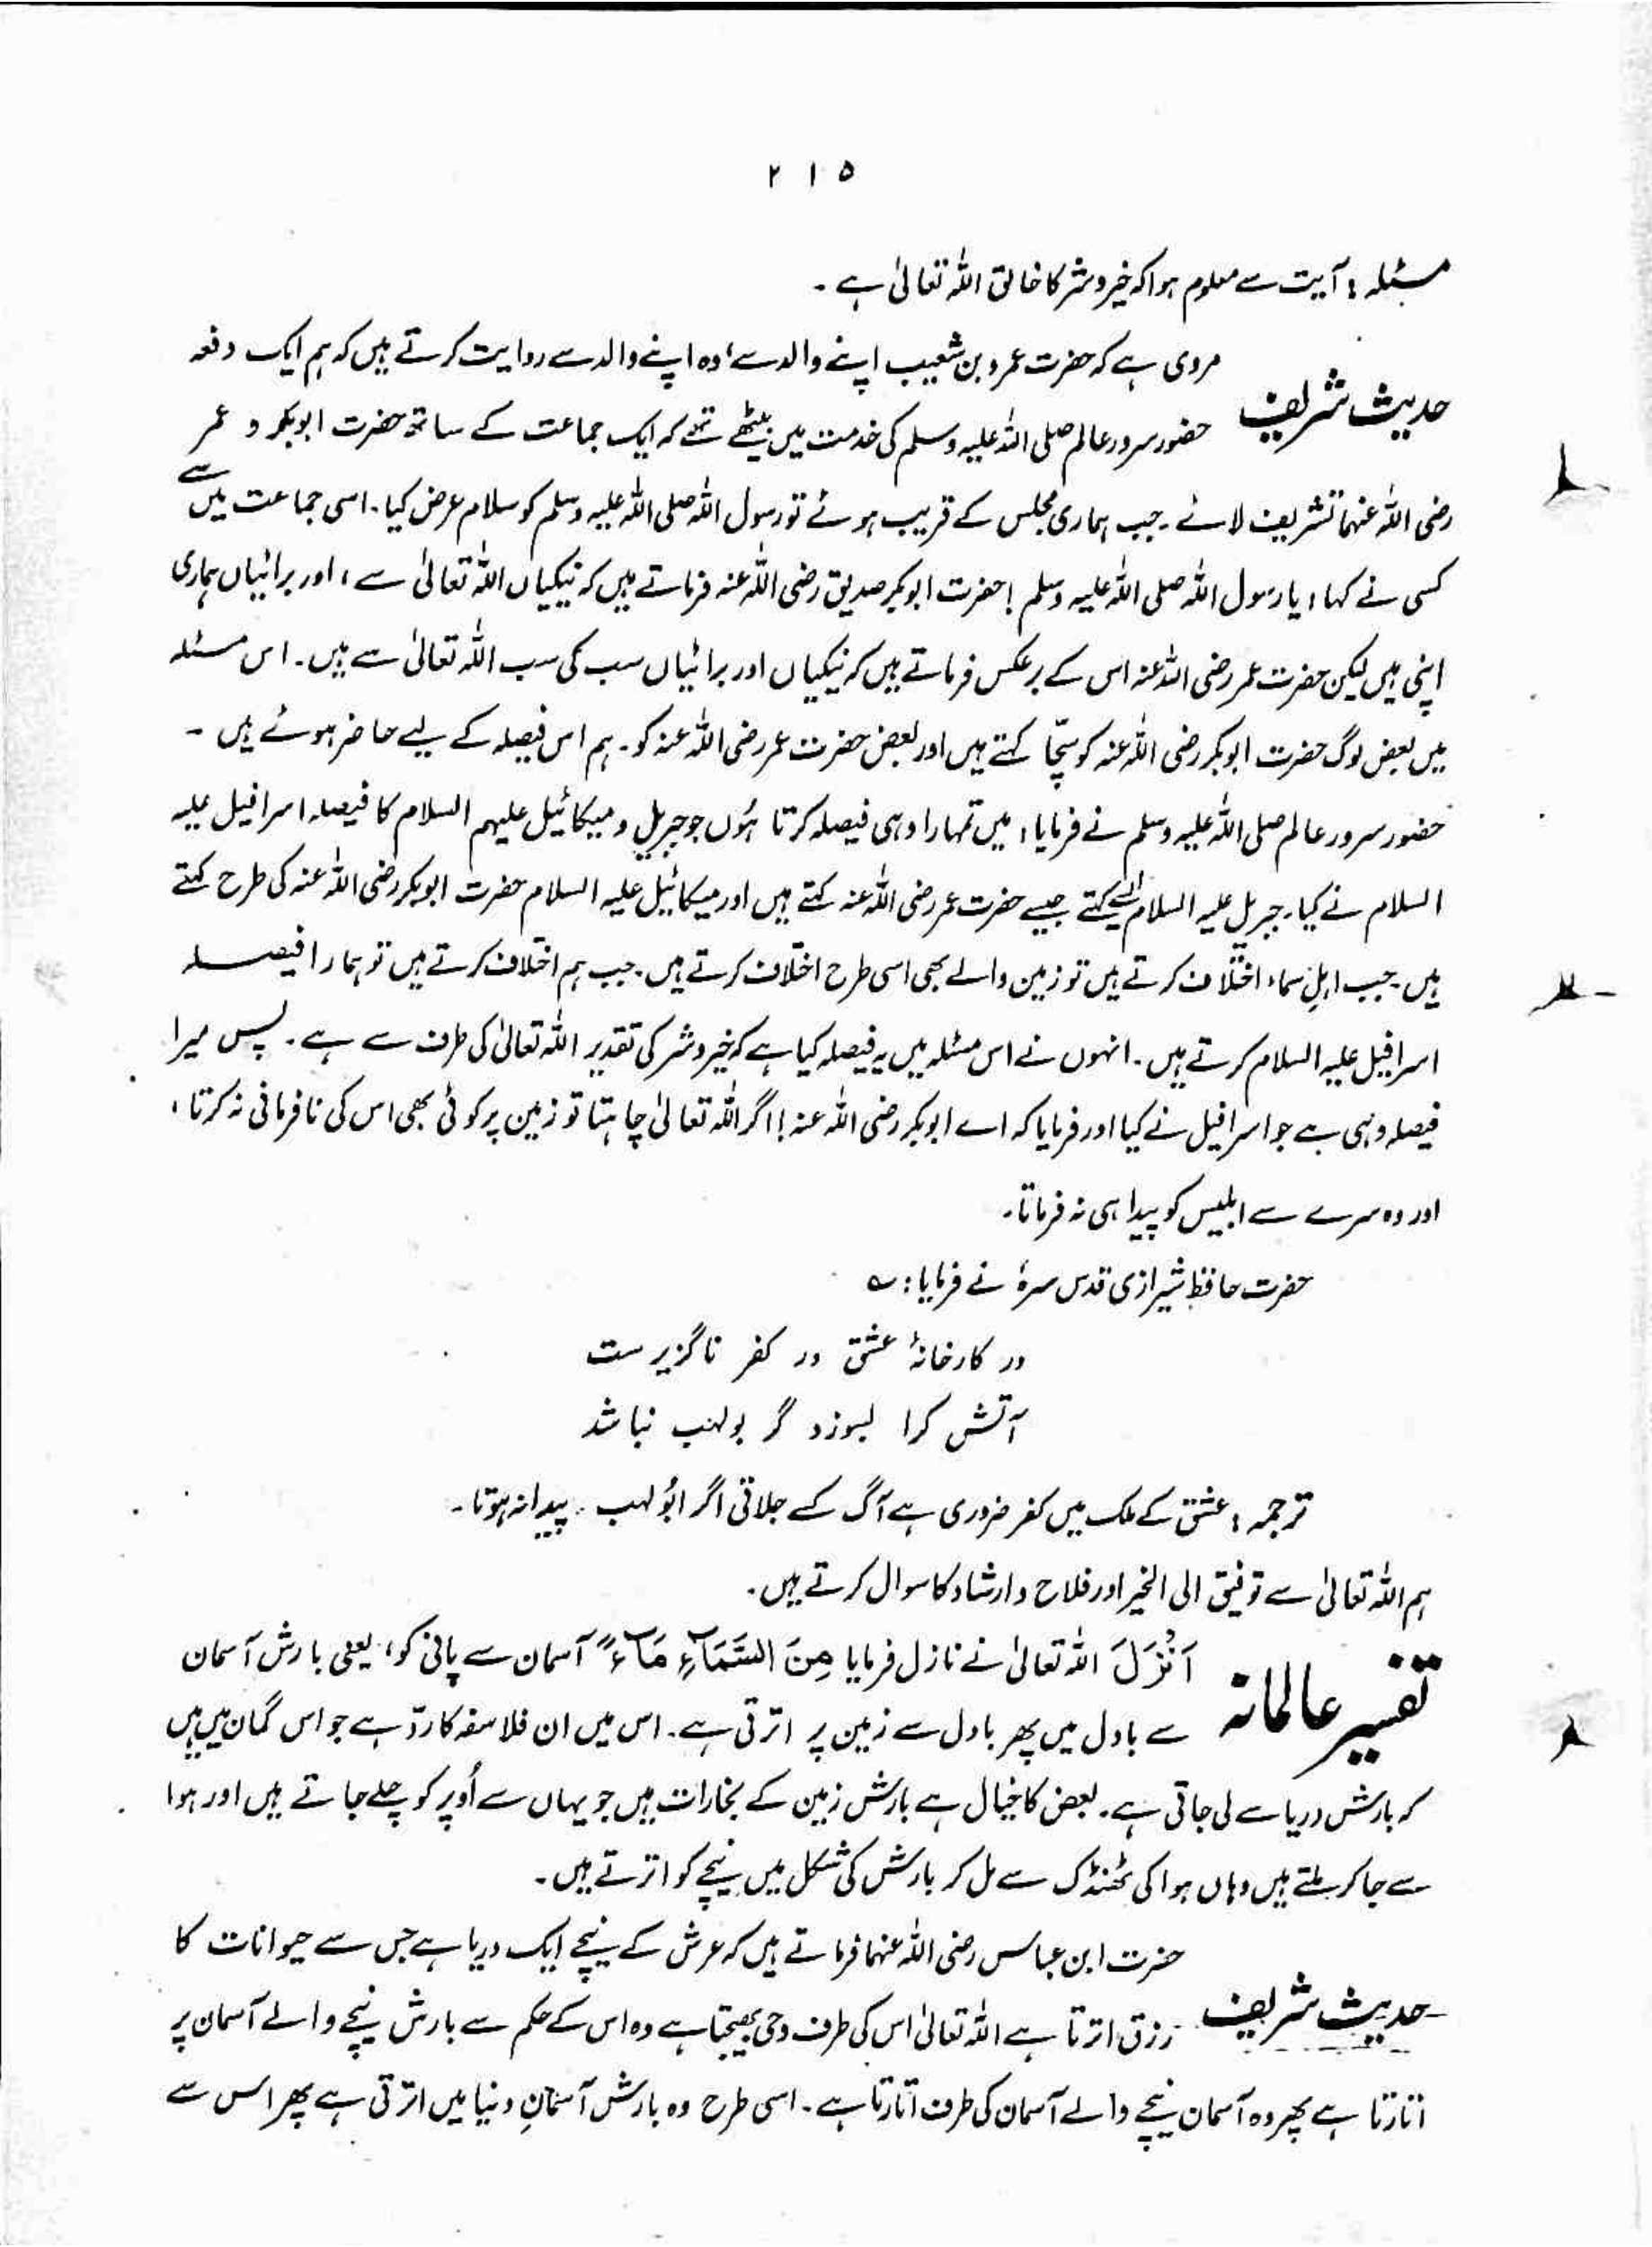 ۲۱۵
مسئلہ: آیت سے معلوم ہوا کہ خیر و شر کا خالق اللہ تعالیٰ ہے۔
مروی ہے کہ حضرت عمرو بن شعیب اپنے والد سے، وہ اپنے والد سے روایت کرتے ہیں کہ ہم ایک دفعہ
حدیث شریف حضور سرور عالم صلی اللہ علیہ وسلم کی خدمت میں بیٹھے تھے کہ ایک جماعت کے ساتھ حضرت ابوبکر و عمر
رضی اللہ عنہما تشریف لائے۔ جب ہماری مجلس کے قریب ہوئے تو رسول اللہ صلی اللہ علیہ وسلم کو سلام عرض کیا۔ اسی جماعت میں سے
کسی نے کہا، یا رسول اللہ صلی اللہ علیہ وسلم! حضرت ابوبکر صدیق رضی اللہ عنہ فرماتے ہیں کہ نیکیاں اللہ تعالیٰ سے، اور برائیاں ہماری
اپنی ہیں لیکن حضرت عمر رضی اللہ عنہ اس کے برعکس فرماتے ہیں کہ نیکیاں اور برائیاں سب کی سب اللہ تعالیٰ سے ہیں۔ اس مسئلہ
میں بعض لوگ حضرت ابوبکر رضی اللہ عنہ کو سچّا کہتے ہیں اور بعض حضرت عمر رضی اللہ عنہ کو۔ ہم اس فیصلہ کے لیے حاضر ہوئے ہیں۔
حضور سرور عالم صلی اللہ علیہ وسلم نے فرمایا، میں تمہارا وہی فیصلہ کرتا ہوں جو جبریل و میکائیل علیہم السلام کا فیصلہ اسرافیل علیہ
السلام نے کیا۔ جبریل علیہ السلام ایسے کہتے جیسے حضرت عمر رضی اللہ عنہ کہتے ہیں اور میکائیل علیہ السلام حضرت ابوبکر رضی اللہ عنہ کی طرح کہتے
ہیں۔ جب اہلِ سماء اختلاف کرتے ہیں تو زمین والے بھی اسی طرح اختلاف کرتے ہیں۔ جب ہم اختلاف کرتے ہیں تو ہمارا فیصلہ
اسرافیل علیہ السلام کرتے ہیں۔ انہوں نے اس مسئلہ میں یہ فیصلہ کیا ہے کہ خیر و شر کی تقدیر اللہ تعالیٰ کی طرف سے ہے۔ پس میرا
فیصلہ وہی ہے جو اسرافیل نے کیا اور فرمایا کہ اے ابوبکر رضی اللہ عنہ! اگر اللہ تعالیٰ چاہتا تو زمین پر کوئی بھی اس کی نافرمانی نہ کرتا،
اور وہ سرے سے ابلیس کو پیدا ہی نہ فرماتا۔
حضرت حافظ شیرازی قدس سرہٗ نے فرمایا: ؎
در کارخانۂ عشق در کفر ناگزیر ست
آتش کرا بسوزد گر بولہب نباشد
ترجمہ: عشق کے ملک میں کفر ضروری ہے آگ کے جلاتی اگر ابُولہب پیدا نہ ہوتا۔
ہم اللہ تعالیٰ سے توفیق الی الخیر اور فلاح و ارشاد کا سوال کرتے ہیں۔
اَنْزَلَ اللہ تعالیٰ نے نازل فرمایا مِنَ السَّمَآءِ مَآءً آسمان سے پانی کو، یعنی بارش آسمان
تفسیر عالمانہ سے بادل میں پھر بادل سے زمین پر اترتی ہے۔ اس میں ان فلاسفہ کا ردّ ہے جو اس گمان میں ہیں
کہ بارش دریا سے لی جاتی ہے۔ بعض کا خیال ہے بارش زمین کے بخارات ہیں جو یہاں سے اُوپر کو چلے جاتے ہیں اور ہوا
سے جا کر ملتے ہیں وہاں ہوا کی ٹھنڈک سے مل کر بارش کی شکل میں نیچے کو اترتے ہیں۔
حضرت ابن عباس رضی اللہ عنہما فرماتے ہیں کہ عرش کے نیچے ایک دریا ہے جس سے حیوانات کا
حدیث شریف رزق اترتا ہے اللہ تعالیٰ اس کی طرف وحی بھیجتا ہے وہ اس کے حکم سے بارش نیچے والے آسمان پر
اتارتا ہے پھر وہ آسمان نیچے والے آسمان کی طرف اتارتا ہے۔ اسی طرح وہ بارش آسمانِ دنیا میں اترتی ہے پھر اس سے